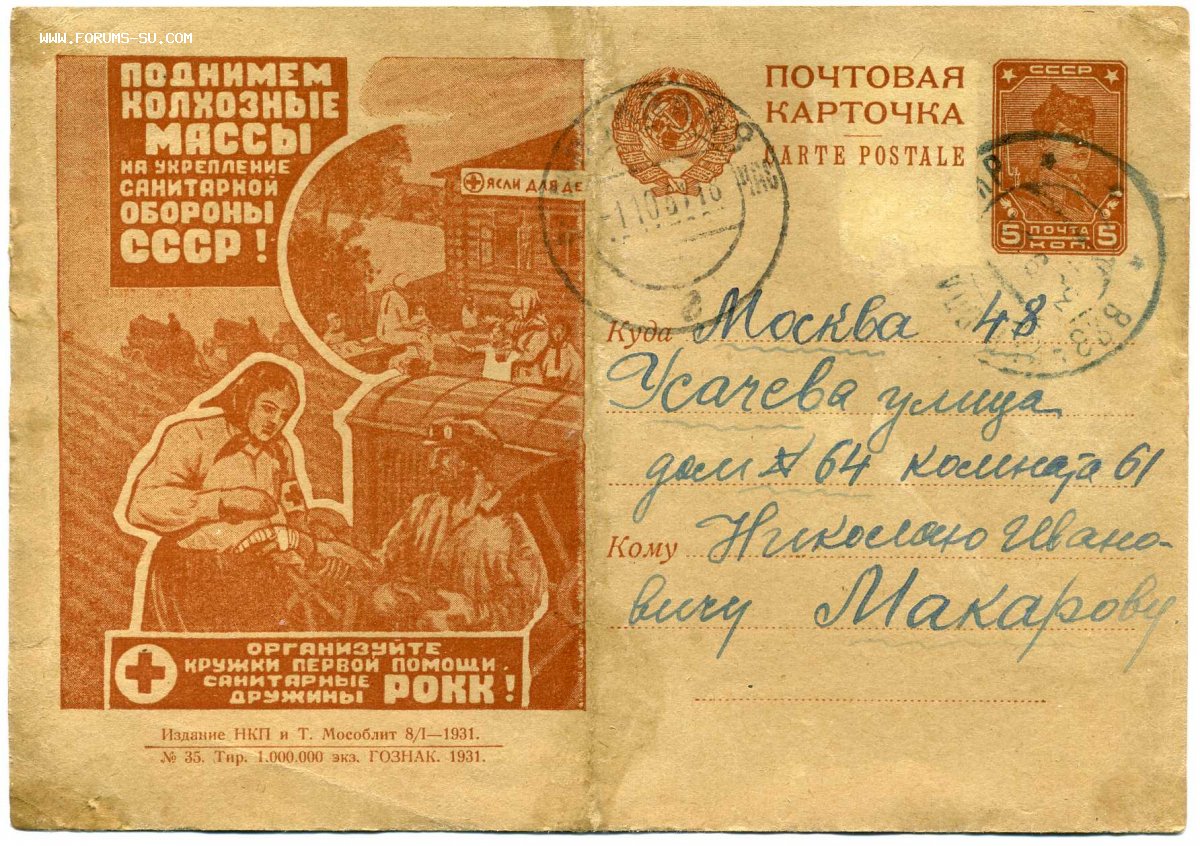 WWW.FORUMS-SU.COM
ПОДНИМЕМ
КОЛХОЗНЫЕ
МАССЫ
НА УКРЕПЛЕНИЕ
САНИТАРНОЙ
ОБОРОНЫ
СССР!
ЯСЛИ ДЛЯ ДЕ
ОРГАНИЗУЙТЕ
КРУЖКИ ПЕРВОЙ ПОМОЩИ.
САНИТАРНЫЕ
ДРУЖИНЫ РОКК!
Издание НКП и Т. Мособлит 8/I—1931.
№ 35. Тир. 1.000.000 экз. ГОЗНАК. 1931.
ПОЧТОВАЯ
КАРТОЧКА
CARTE POSTALE
СССР
5 ПОЧТА КОП. 5
Куда Москва 48
Усачева улица
дом № 64 комната 61
Кому Николаю Ивано-
вичу Макарову.